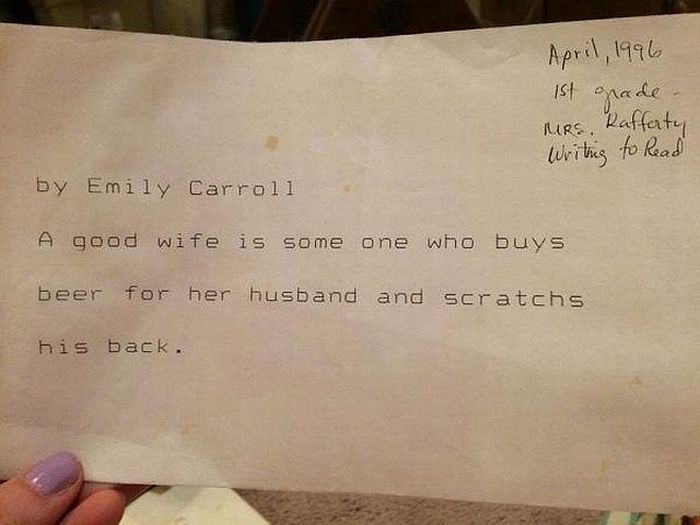 April, 1996
1st grade -
MRS. Rafferty
Writing to Read
by Emily Carroll
A good wife is some one who buys
beer for her husband and scratchs
his back.